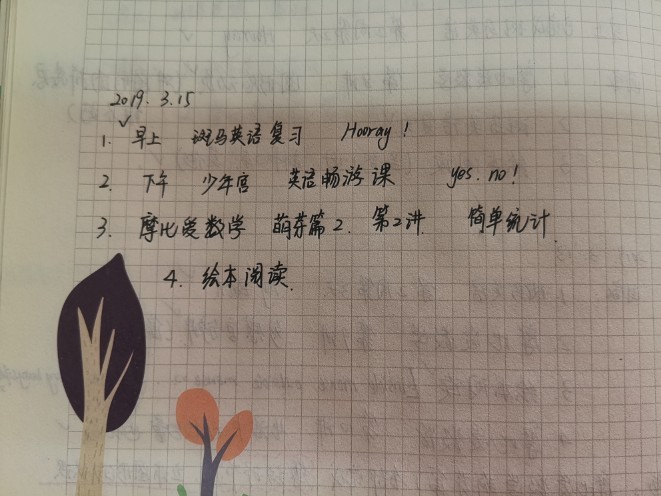 2019. 3.15
✓
1. 早上 斑马英语复习 Hooray!
2. 下午 少年宫 英语畅游课 yes. no!
3. 摩比爱数学 萌芽篇2. 第2讲. 简单统计.
4. 绘本阅读.